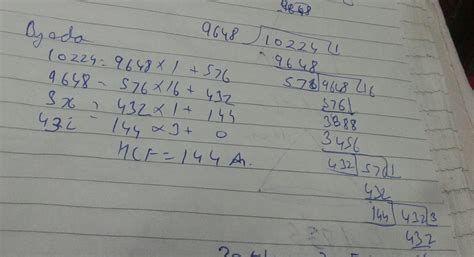 9648
Ogada
10224 = 9648 x 1 + 576
9648 = 576 x 16 + 432
= 432 x 1 + 144
432 = 144 x 3 + 0
HCF = 144 A.
9648 ) 10224 ( 1
- 9648
576 9648 16
576
3888
3456
432 576 1
432
144 432 3
432